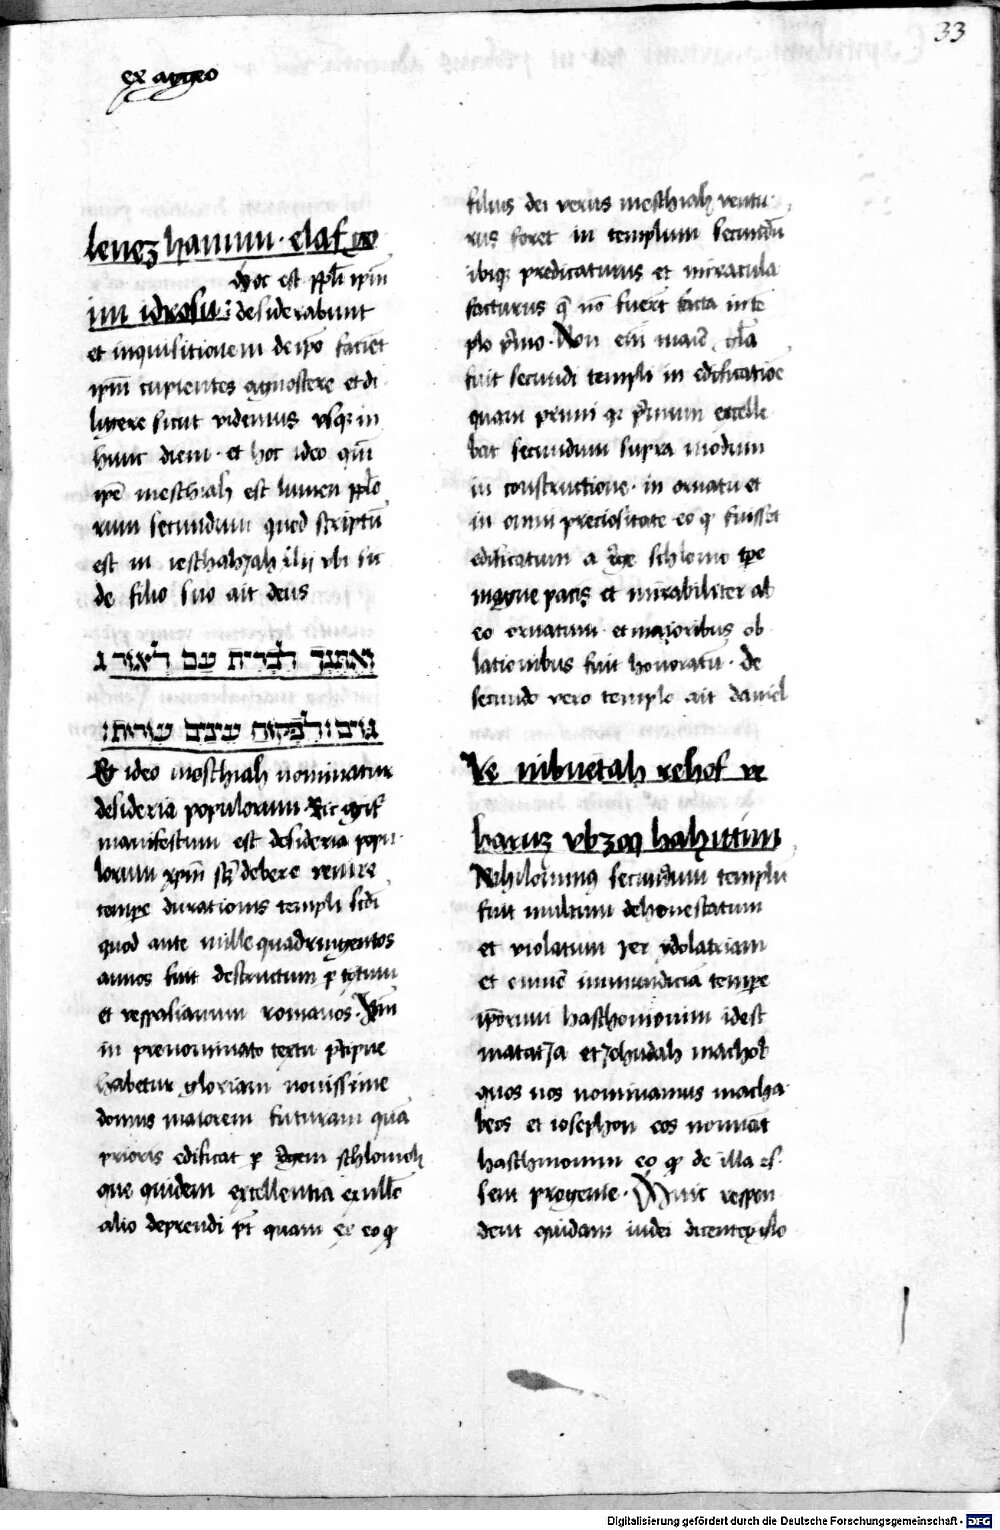 33
ex aggeo
lenez hamim · elaf
hoc est ppli ipm
im idrosu : desiderabunt
et inquisitionem de ipo facient
ipm cupientes agnoscere et di
ligere sicut videmus vsque in
hunc diem · et hoc ideo qm
ipe meschiah est lumen pplo
rum secundum quod scriptu
est in ieschahiah xlii vbi sic
de filio suo ait deus
ואתנך לברית עם לאור ג
גוים : לפקוח עינים עורות :
Et ideo moschiah nominatur
desideria populorum · Sic igit
manifestum est desideria popu
lorum xpm scz debere venire
tempe durationis templi scdi
quod ante mille quadringentos
annos fuit destructum p tytum
et vespasianum romanos ·
in prenominato textu ptipue
habetur gloriam nouissime
domus maiorem futuram qua
prioris edificat p regem schlomoh
que quidem excellentia ex nullo
alio deprendi pt quam ex eo q
filius dei verus meschiah ventu
rus foret in templum secundu
ibique predicaturus et miracula
facturus q no fuert facta in te
plo pmo · Non em maior gla
fuit secundi templi in edificatioe
quam primi qr primum excelle
bat secundum supra modum
in constructione · in ornatu et
in omni preciositate eo q fuisset
edificatum a rege schlomo tpe
magne pacis et mirabiliter ab
eo ornatum et maioribus ob
lationibus fuit honoratu · de
secundo vero templo ait daniel
Ve nibuetah rehof ve
haruz vbzoq hahittim
Nihilominus secundum templu
fuit multum dehonestatum
et violatum per ydolatriam
et omne immundicia tempe
iporum haschomonim idest
matatja et Jehudah machob
quos nos nominamus macha
beos et iosephon eos nominat
haschmonim eo q de illa es
sent progenie · Huic respon
dent quidam iudei dicentes
Digitalisierung gefördert durch die Deutsche Forschungsgemeinschaft - DFG